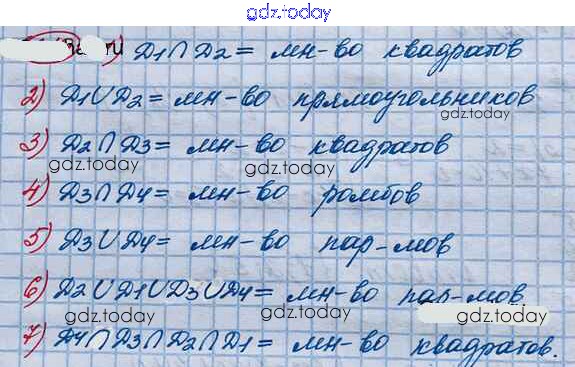 gdz.today
1) Д1∩Д2= мн-во квадратов
2) Д1∪Д2= мн-во прямоугольников
gdz.today
3) Д2∩Д3= мн-во квадратов
gdz.today gdz.today
4) Д3∩Д4= мн-во ромбов
gdz.today
5) Д3∪Д4= мн-во пар-мов
gdz.today
6) Д2∪Д1∪Д3∪Д4= мн-во пар-мов
gdz.today gdz.today gdz.today
7) Д4∩Д3∩Д2∩Д1= мн-во квадратов.